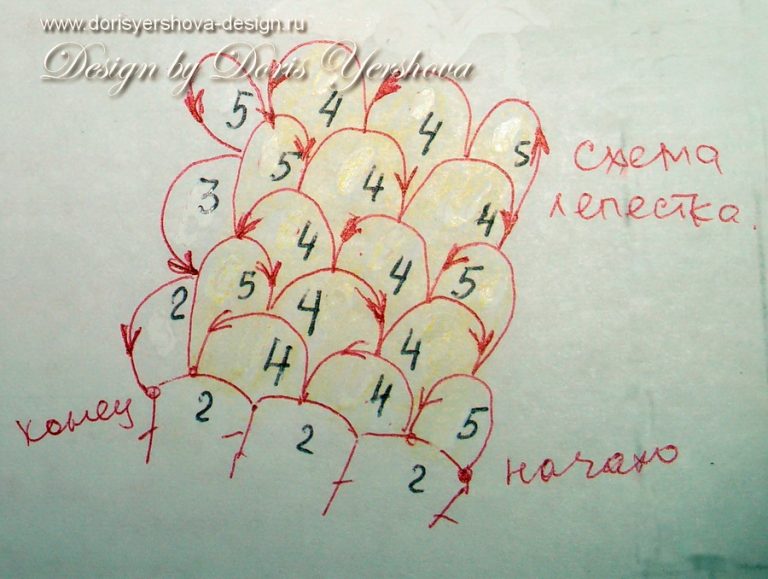 www.dorisyershova-design.ru
Design by Doris Yershova
5 4 4 5
схема
лепестка.
5 4 4
3
4 4 5
2 5 4 4
4 4 5
конец
2 2 2
начало